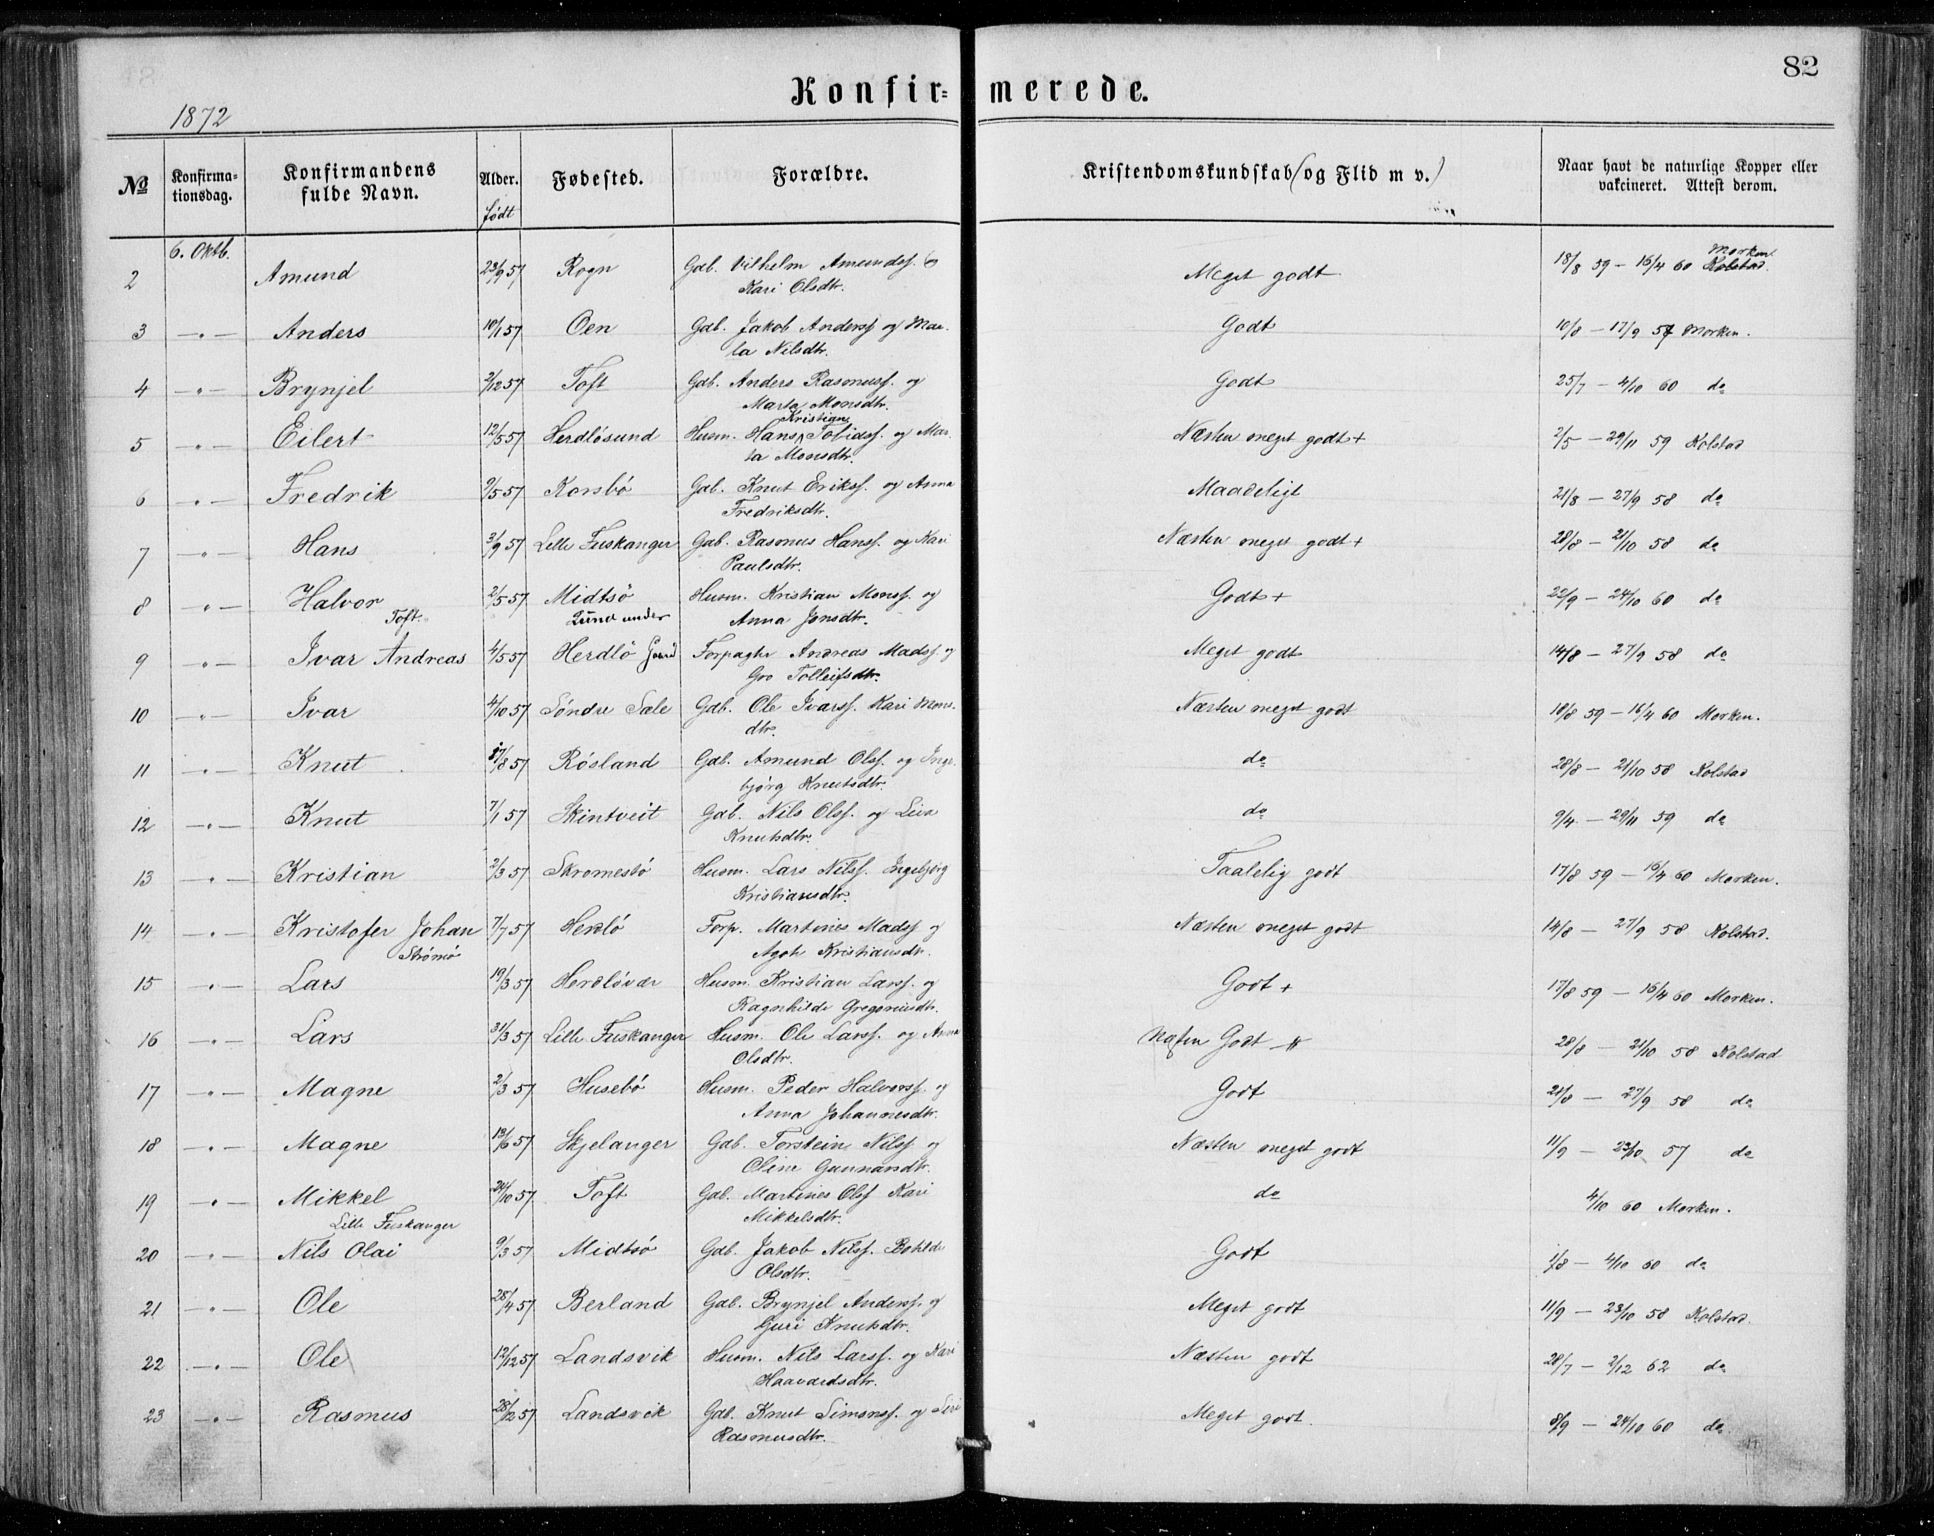 82
Konfirmerede.
1872
No Konfirmationsdag. Konfirmandens fulde Navn. Alder. født Fødested. Forældre. Kristendomskundskab (og Flid m v.) Naar havt de naturlige Kopper eller vakcineret. Attest derom.
2 6. Oktb. Amund 23/9 57 Rogn Gdb. Vilhelm Amundss. og Kari Olsdtr. Meget godt 18/8 59 – 16/4 60 Morken Kolstad
3 – " – Anders 10/1 57 Oen Gdb. Jakob Anderss og Marta Nilsdtr. Godt 10/8 – 17/9 57 Morken.
4 – " – Brynjel 2/12 57 Toft Gdb. Anders Rasmuss. og Marta Monsdtr. Godt 25/7 – 4/10 60 do
5 – " – Eilert 12/5 57 Herdlösund Husm. Hans Kristian Tobiass. og Marta Monsdtr. Næsten meget godt + 2/5 – 29/11 59 Kolstad
6 – " – Fredrik 9/5 57 Korsbö Gdb. Knut Erikss. og Anna Fredriksdtr. Maadeligt 21/8 – 27/9 58 do
7 – " – Hans 3/9 57 Lille Fuskanger Gdb. Rasmus Hanss. og Kari Paulsdtr. Næsten meget godt + 28/8 – 21/10 58 do
8 – " – Halvor Toft 2/5 57 Midtsö Husm. Kristian Monss. og Anna Jonsdtr. Godt + 22/9 – 24/10 60 do
9 – " – Ivar Andreas 4/5 57 Lund under Herdlö Gaard Forpagter Andreas Madss. og Gro Tolleifsdtr. Meget godt 14/8 – 27/9 58 do
10 – " – Ivar 4/10 57 Söndre Sæle Gdb. Ole Ivarss. Kari Monsdtr. Næsten meget godt 18/8 59 – 16/4 60 Morken.
11 – " – Knut 17/8 57 Rösland Gdb. Amund Olss. og Ingebjörg Knutsdtr. do 28/8 – 21/10 58 Kolstad
12 – " – Knut 7/1 57 Skintveit Gdb. Nils Olss. og Siri Knutsdtr. do 9/4 – 29/11 59 do
13 – " – Kristian 2/3 57 Skromesbö Husm. Lars Nilss. Ingebjörg Kristiansdtr. Taalelig godt 17/8 59 – 16/4 60 Morken.
14 – " – Kristofer Johan Strömö 7/7 57 Herdlö Forp. Martines Madss og Agote Kristiansdtr. Næsten meget godt 14/8 – 27/9 58 Kolstad.
15 – " – Lars 19/3 57 Herdlövær Husm. Kristian Larss. og Ragnhilde Gregoriusdtr. Godt + 17/8 59 – 16/4 60 Morken.
16 – " – Lars 31/3 57 Lille Fuskanger Husm. Ole Larss. og Anna Olsdtr. Næsten Godt 28/8 – 21/10 58 Kolstad
17 – " – Magne 2/3 57 Husebö Husm. Peder Halvorss. og Anna Johannesdtr. Godt 21/8 – 27/9 58 do
18 – " – Magne 13/6 57 Skjelanger Gdb. Torstein Nilss og Oline Gunnarsdtr. Næsten meget godt 11/9 – 23/10 57 do
19 – " – Mikkel 24/10 57 Toft Gdb. Martines Olss Kari Mikkelsdtr. do 4/10 60 Morken.
20 – " – Lille Fuskanger Nils Olai 9/3 57 Midtsö Gdb. Jakob Nilss. Bothilde Olsdtr. Godt 1/8 – 4/10 60 do
21 – " – Ole 28/4 57 Berland Gdb. Brynjel Anderss. og Guri Knutsdtr. Meget godt 11/9 – 23/10 58 Kolstad.
22 – " – Ole 12/12 57 Landsvik Husm. Nils Larss. og Kari Haavardsdtr. Næsten godt 28/7 – 2/12 62 do
23 – " – Rasmus 28/12 57 Landsvik Gdb. Knut Simonss. og Siri Rasmusdtr. Meget godt. 8/9 – 24/10 60 do